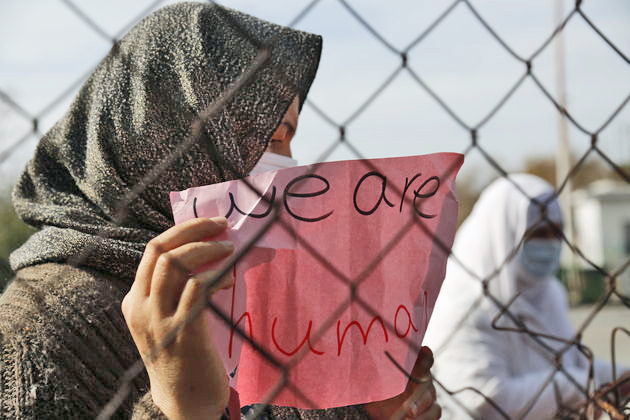 we are
human